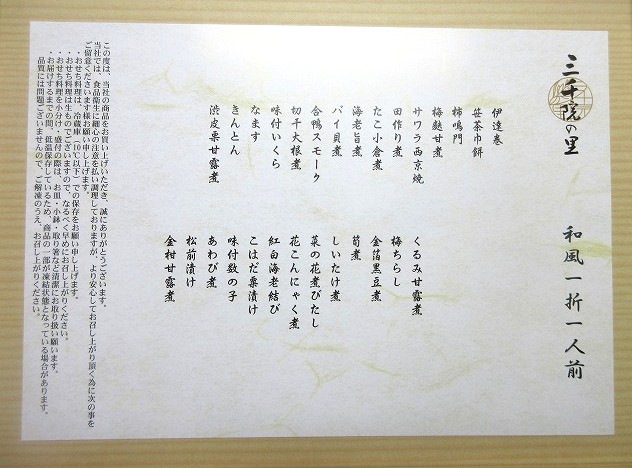 三千院の里
和風一折一人前
伊達巻
笹茶巾餅
柿鳴門
梅麩甘煮
サワラ西京焼
田作り煮
たこ小倉煮
海老旨煮
バイ貝煮
合鴨スモーク
切干大根煮
味付いくら
なます
きんとん
渋皮栗甘露煮
くるみ甘露煮
梅ちらし
金箔黒豆煮
筍煮
しいたけ煮
菜の花煮びたし
花こんにゃく煮
紅白海老結び
こはだ粟漬け
味付数の子
あわび煮
松前漬け
金柑甘露煮
この度は、当社の商品をお買い上げいただき、誠にありがとうございます。
当社では、食品衛生に細心の注意を払い調理しておりますが、より安心してお召し上がり頂く為に次の事を
ご留意くださいます様お願い申し上げます。
・おせち料理は、冷蔵庫（10℃以下）での保存をお願い申し上げます。
・おせち料理は生ものでございますので、なるべく早めにお召し上がりください。
・おせち料理を小分け・盛付の際は、お皿・小鉢・取り箸など清潔にお取り扱い願います。
・お届けするまでの間、低温保存しているため、商品の一部が凍結状態となっている場合があります。
品質には問題ございませんので、ご解凍のうえ、お召し上がりください。